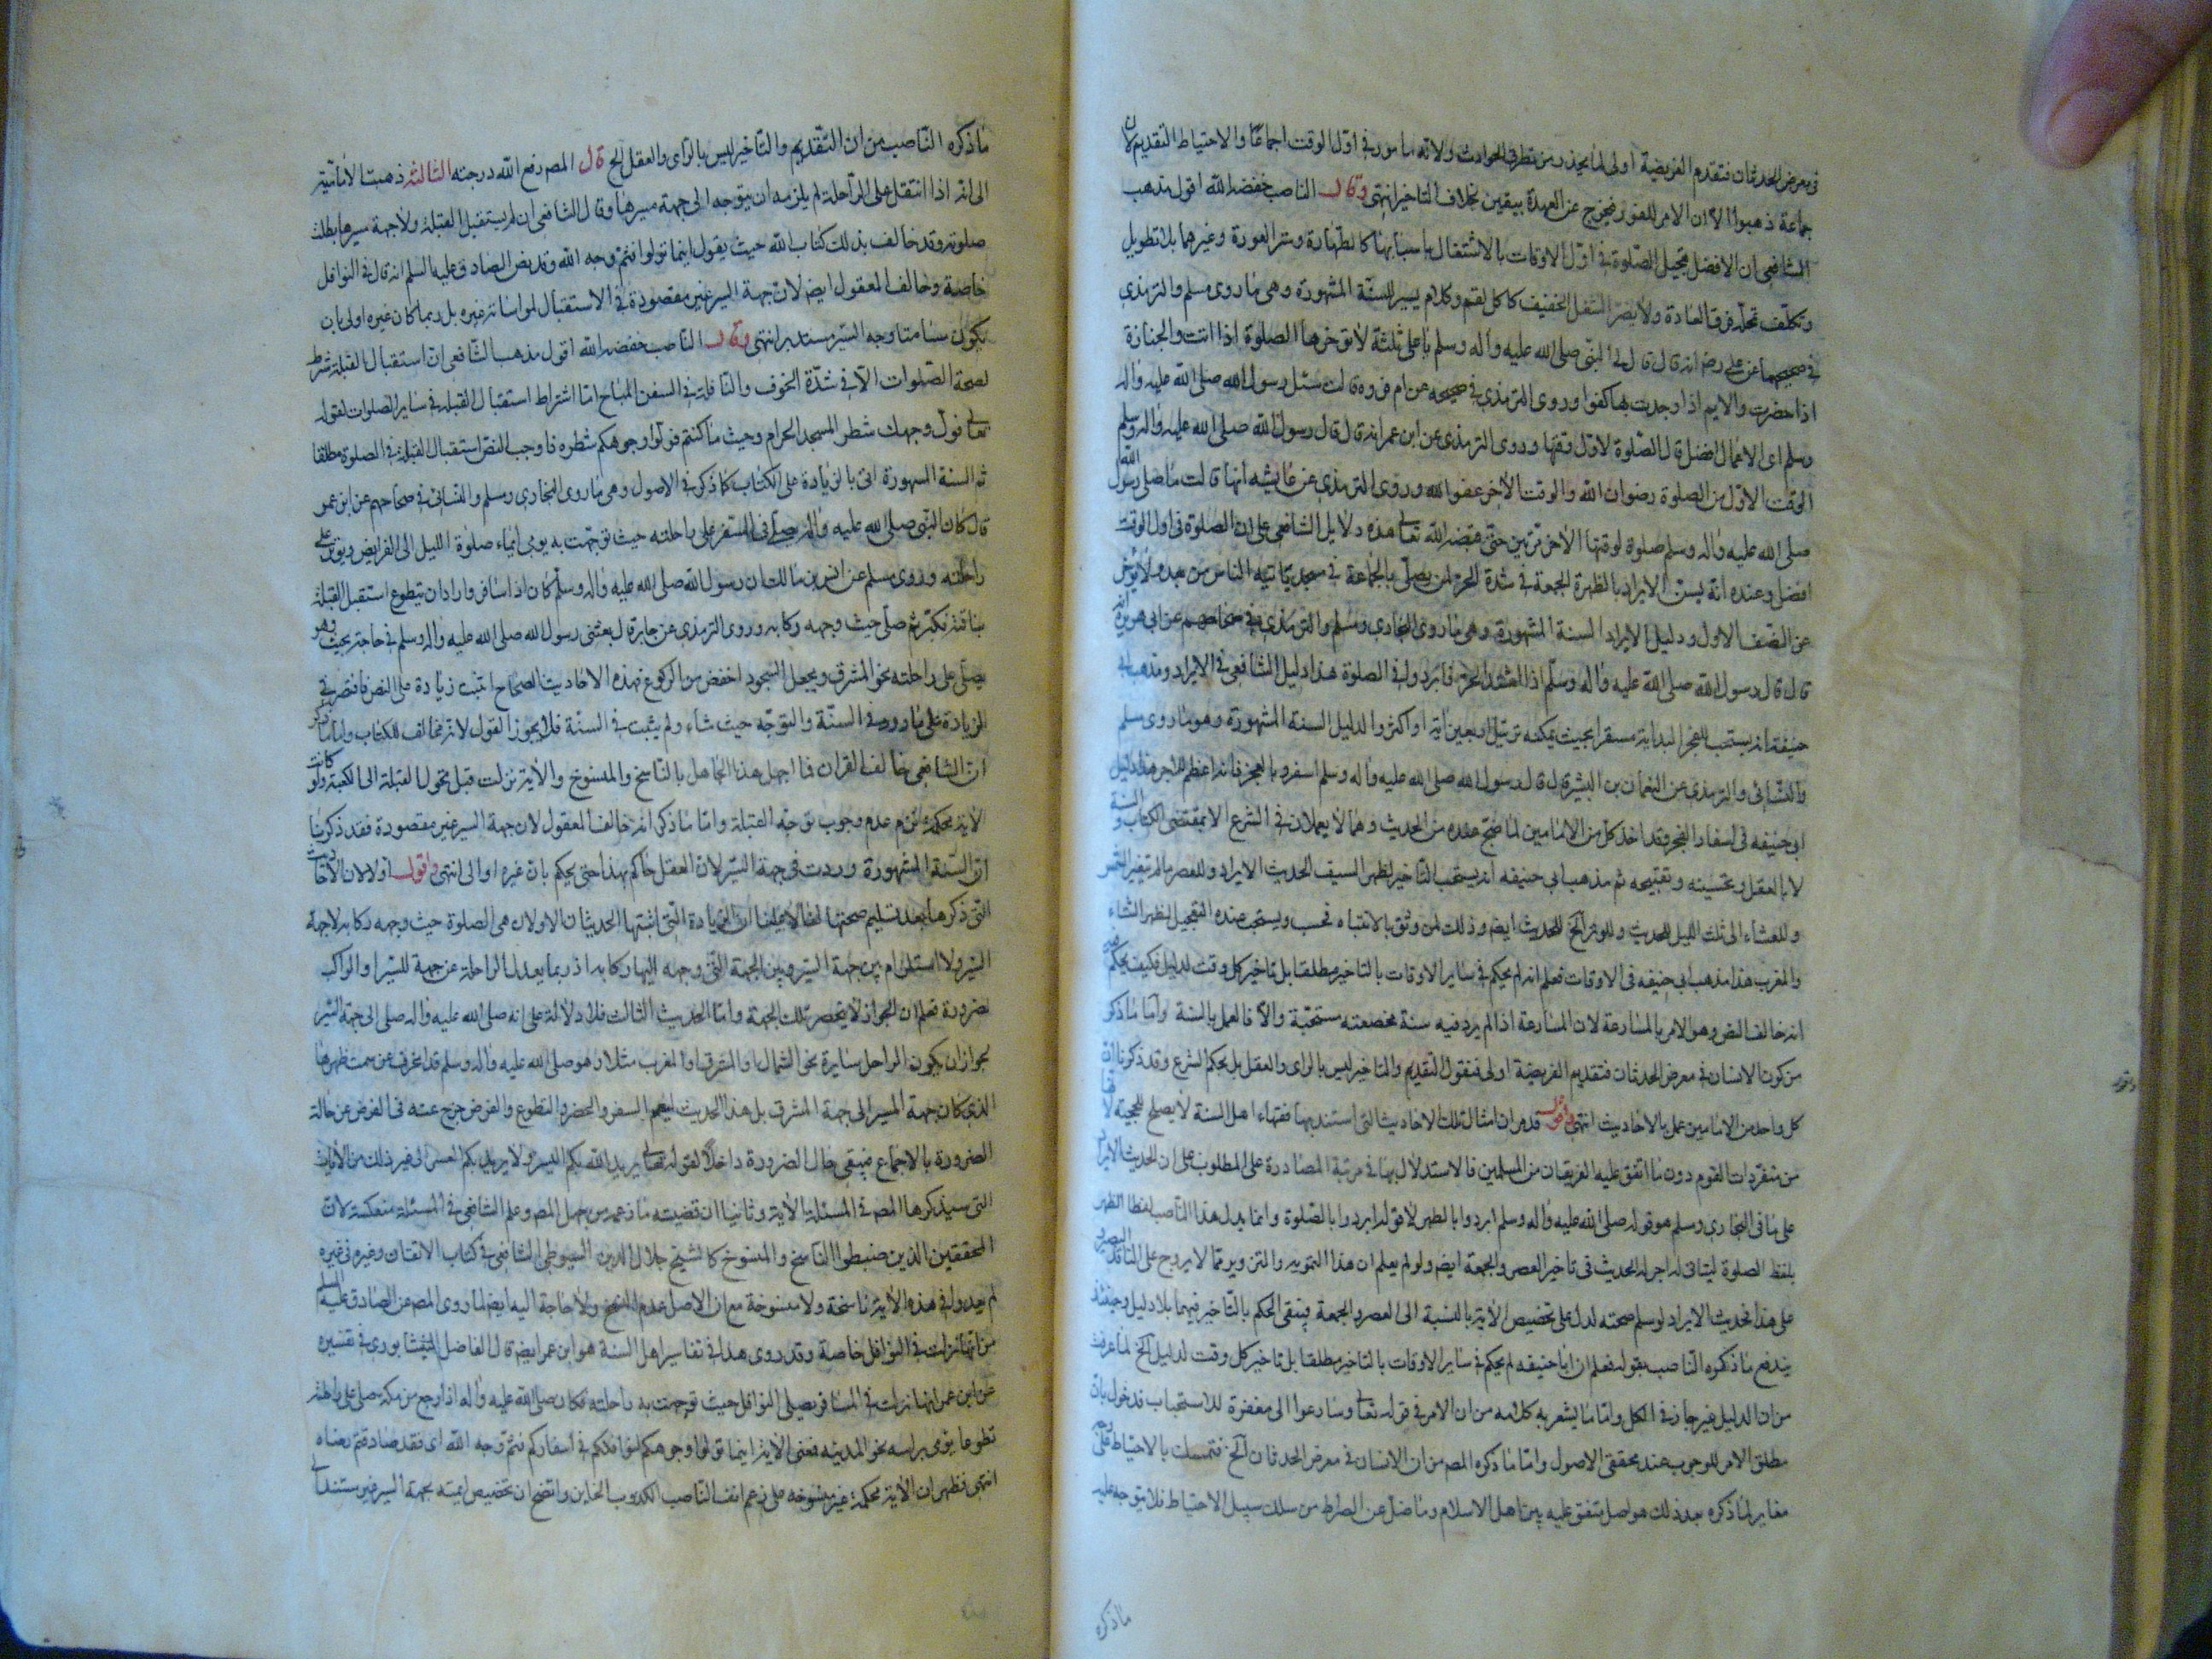 في معرض الحدثان فتقدم الفريضة اولى لما يحذر من تطرق الحوادث ولانه مامور في اول الوقت اجماعا والاحتياط التقديم لان
جماعة ذهبوا الا ان الامر للفور فيخرج عن العهدة بيقين بخلاف التاخير انتهى وقال الناصب خفضه الله اقول مذهب
الشافعي ان الافضل تعجيل الصلوة في اول الاوقات بالاشتغال باسبابها كالطهارة وستر العورة وغيرهما بلا تطويل
وتكلف عجلة فوق العادة ولا يضر الشغل الخفيف كاكل لقم وكلام يسير للسنة المشهورة وهي ما روى مسلم والترمذي
في صحيحهما عن علي رض انه قال قال لي النبي صلى الله عليه واله وسلم يا علي ثلثة لا تؤخرها الصلوة اذا اتت والجنازة
اذا حضرت والايم اذا وجدت لها كفوا وروى الترمذي في صحيحه عن ام فروة قالت سئل رسول الله صلى الله عليه واله
وسلم اي الاعمال افضل قال الصلوة لاول وقتها وروى الترمذي عن ابن عمر انه قال قال رسول الله صلى الله عليه واله وسلم
الوقت الاول من الصلوة رضوان الله والوقت الاخر عفو الله وروى الترمذي عن عايشه انها قالت ما صلى رسول الله
صلى الله عليه واله وسلم صلوة لوقتها الاخر مرتين حتى قبضه الله تعالى هذه دلايل الشافعي على ان الصلوة في اول الوقت
افضل وعنده انه يسن الايراد بالظهرة الجمعة في شدة الحر لمن يصلى بالجماعة في مسجد ياتيه الناس من بعد ولا يؤخر
عن النصف الاول ودليل الايراد السنة المشهورة وهي ما روى البخاري ومسلم والترمذي في صحاحهم عن ابي هريرة انه
قال قال رسول الله صلى الله عليه واله وسلم اذا اشتد الحر فابردوا في الصلوة هذا دليل الشافعي في الايراد ومذهب ابي
حنيفة انه يستحب للفجر البداية مسفرا بحيث يمكنه ترتيل اربعين اية او اكثر والدليل السنة المشهورة وهو ما روى مسلم
والنسائي والترمذي عن النعمان بن البشير قال قال رسول الله صلى الله عليه واله وسلم اسفروا بالفجر فانه اعظم للاجر هذا دليل
ابي حنيفه في اسفار الفجر وقد اخذ كل من الامامين لما صح عنده من الحديث وهما لا يعملان في الشرع الا بمقتضى الكتاب والسنة
لا بالعقل وتحسينه وتقبيحه ثم مذهب ابي حنيفه انه يستحب التاخير لظهر الصيف لحديث الايراد وللعصر ما لم يتغير الشمس
وللعشاء الى ثلث الليل للحديث وللوتر الخ للحديث ايضم وذلك لمن وثق بالانتباه فحسب ويستحب عنده التعجيل لظهر الشتاء
والمغرب هذا مذهب ابي حنيفه في الاوقات فعلم انه لم يحكم في ساير الاوقات بالتاخير مطلقا بل تاخير كل وقت لدليل فكيف يحكم
انه خالف النص وهو الامر بالمسارعة لان المسارعة اذا لم يرد فيه سنة مخصصته مستحبة والا فالعمل بالسنة واما ما ذكر
من كون الانسان في معرض الحدثان فتقديم الفريضة اولى فنقول التقديم والتاخير ليس بالراى والعقل بل بحكم الشرع وقد ذكرنا ان
كل واحد من الامامين عمل بالاحاديث انتهى واقول قد مر ان امثال تلك الاحاديث التي استند بها فقهاء اهل السنة لا يصلح للحجية لانها
من متفردات القوم دون ما اتفق عليه الفريقان من المسلمين فالاستدلال بها في مرتبة المصادرة على المطلوب على ان الحديث الايراد
على ما في البخاري وسلم هو قوله صلى الله عليه واله وسلم ابردوا بالظهر لا قوله ابردوا بالصلوة وانما بدل هذا الناصب لفظ الظهر
بلفظ الصلوة ليتاتى له اجراء الحديث في تاخير العصر والجمعة ايضم ولو لم يعلم ان هذا التمويه والتزوير مما لا يروج على الناقد البصير
على هذا فحديث الايراد لو سلم صحته لدل على تخصيص الاية بالنسبة الى العصر والجمعة فينبغى الحكم بالتاخير فيهما بلا دليل وحينئذ
يندفع ما ذكره الناصب بقوله فعلم ان ابا حنيفه لم يحكم في ساير الاوقات بالتاخير مطلقا بل تاخير كل وقت لدليل الخ لما عرفت
من ان الدليل غير جار في الكل واما ما يشعر به كلامه من ان الامر في قوله تعالى وسارعوا الى مغفرة للاستحباب فدخول بان
مطلق الامر للوجوب عند محققي الاصول واما ما ذكره المصم من ان الانسان في معرض الحدثان الخ فتمسك بالاحتياط على وجه
مغاير لما ذكره بعد ذلك هو اصل متفق عليه بين اهل الاسلام وما ضل عن الصراط من سلك سبيل الاحتياط فلا يتوجه عليه
ما ذكره
ما ذكره الناصب من ان التقديم والتاخير ليس بالراى والعقل الخ قال المصم رفع الله درجته الثالثه ذهبت الامامية
الى انه اذا انتقل على الراحلة لم يلزمه ان يتوجه الى جهة مسيرها وقال الشافعي ان لم يستقبل القبلة ولا جهة سيرها بطلت
صلوته وقد خالف بذلك كتاب الله حيث يقول اينما تولوا فثم وجه الله وقد نص الصادق عليه السلم انه قال في النوافل
خاصة وخالف المعقول ايضم لان جهة السير غير مقصودة في الاستقبال لمواساته غيره بل ربما كان غيره اولى بان
يكون متيامنا وجه السير مستدبرا انتهى وقال الناصب خفضه الله اقول مذهب الشافعي ان استقبال القبلة شرط
لصحة الصلوات الا في شدة الخوف والنافلة في السفر المباح اما اشتراط استقبال القبله في ساير الصلوات لقوله
تعالى فول وجهك شطر المسجد الحرام وحيث ما كنتم فولوا وجوهكم شطره فاوجب النص استقبال القبلة في الصلوة مطلقا
ثم السنة المشهورة اتى بالزيادة على الكتاب كما ذكر في الاصول وهي ما روى البخاري ومسلم والنسائي في صحاحهم عن ابن عمر
قال كان النبي صلى الله عليه واله يصلي في السفر على راحلته حيث توجهت به يومى ايماء صلوة الليل الى الفرايض ويوتر على
راحلته وروى مسلم عن انس بن مالك ان رسول الله صلى الله عليه واله وسلم كان اذا سافر واراد ان يتطوع استقبل القبلة
بناقته فكبر ثم صلى حيث وجهه ركابه وروى الترمذي عن جابر قال بعثني رسول الله صلى الله عليه واله وسلم في حاجة بجيت وهو
يصلي على راحلته نحو المشرق ويجعل السجود اخفض من الركوع فهذه الاحاديث الصحاح اثبت زيادة على النص فانتصر في
الزيادة على ما ورد في السنة والتوجه حيث شاء ولم يثبت في السنة فلا يجوز القول لانه مخالف للكتاب واما ما ذكر
ان الشافعي خالف القران فما اجهل هذا الجاهل بالناسخ والمنسوخ والاية نزلت قبل تحول القبلة الى الكعبة ولو كانت
الاية محكمة لزم عدم وجوب توجه القبلة واما ما ذكر انه خالف المعقول لان جهة السير غير مقصودة فقد ذكرنا
ان السنة المشهورة وردت في جهة السير لان العقل حاكم بهذا حتى يحكم بان غيره اولى انتهى واقول اولا لان الاحاديث
التي ذكرها بعد تسليم صحتها لا ان الزيادة التي اثبتها الحديثان الاولان هي الصلوة حيث وجهه ركابه لا جهة
السير ولا استلزام بين جهة السير وبين الجهة التي وجهه اليها ركابه اذ ربما يعدل الراحلة عن جهة السير او الراكب
لضرورة فعلم ان الجواز لا ينحصر بتلك الجهة واما الحديث الثالث فلا دلالة على انه صلى الله عليه واله صلى الى جهة السير
لجواز ان يكون الراحل سايرة نحو الشمال او المشرق او المغرب مثلا وهو صلى الله عليه واله وسلم قد انحرف عن سمت ظهرها
الذي كان جهة المسير الى جهة المشرق بل هذا الحديث ليعم السفر والحضر والتطوع والفرض خرج عنه في الفرض عن حالة
الضرورة بالاجماع فيبقى حال الضرورة داخلا لقوله تعالى يريد الله بكم اليسر ولا يريد بكم العسر الى غير ذلك من الايات
التي سيذكرها المصم في المسئلة الاية وثانيا ان قضيته ما زعمه من جهل المصم وعلم الشافعي في المسئلة منعكسة لان
المحققين الذين ضبطوا الناسخ والمنسوخ كالشيخ جلال الدين السيوطي الشافعي في كتاب الاتقان وغيره في غيره
لم يعدوا في هذه الاية ناسخة ولا منسوخة مع ان الاصل عدم النسخ ولا حاجة اليه ايضم لما روى المصم عن الصادق عليه السلم
من انها نزلت في النوافل خاصة وقد روى هذا في تفاسير اهل السنة هو ابن عمر ايضم قال الفاضل النيشابوري في تفسيره
عن ابن عمر انها نزلت في المسافر يصلي النوافل حيث توجهت به راحلته فكان صلى الله عليه واله اذا رجع من مكة صلى على راحلته
تطوعا يومى براسه نحو المدينه فمعنى الاية اينما تولوا وجوهكم لنوافلكم في اسفاركم فثم وجه الله اى فقد صادقتم رضاه
انتهى فظهر ان الاية محكمة غير منسوخه على زعم انف الناصب الكذوب الخاين واتضح ان تخصيص ايمته بجهة السير غير مستند الى